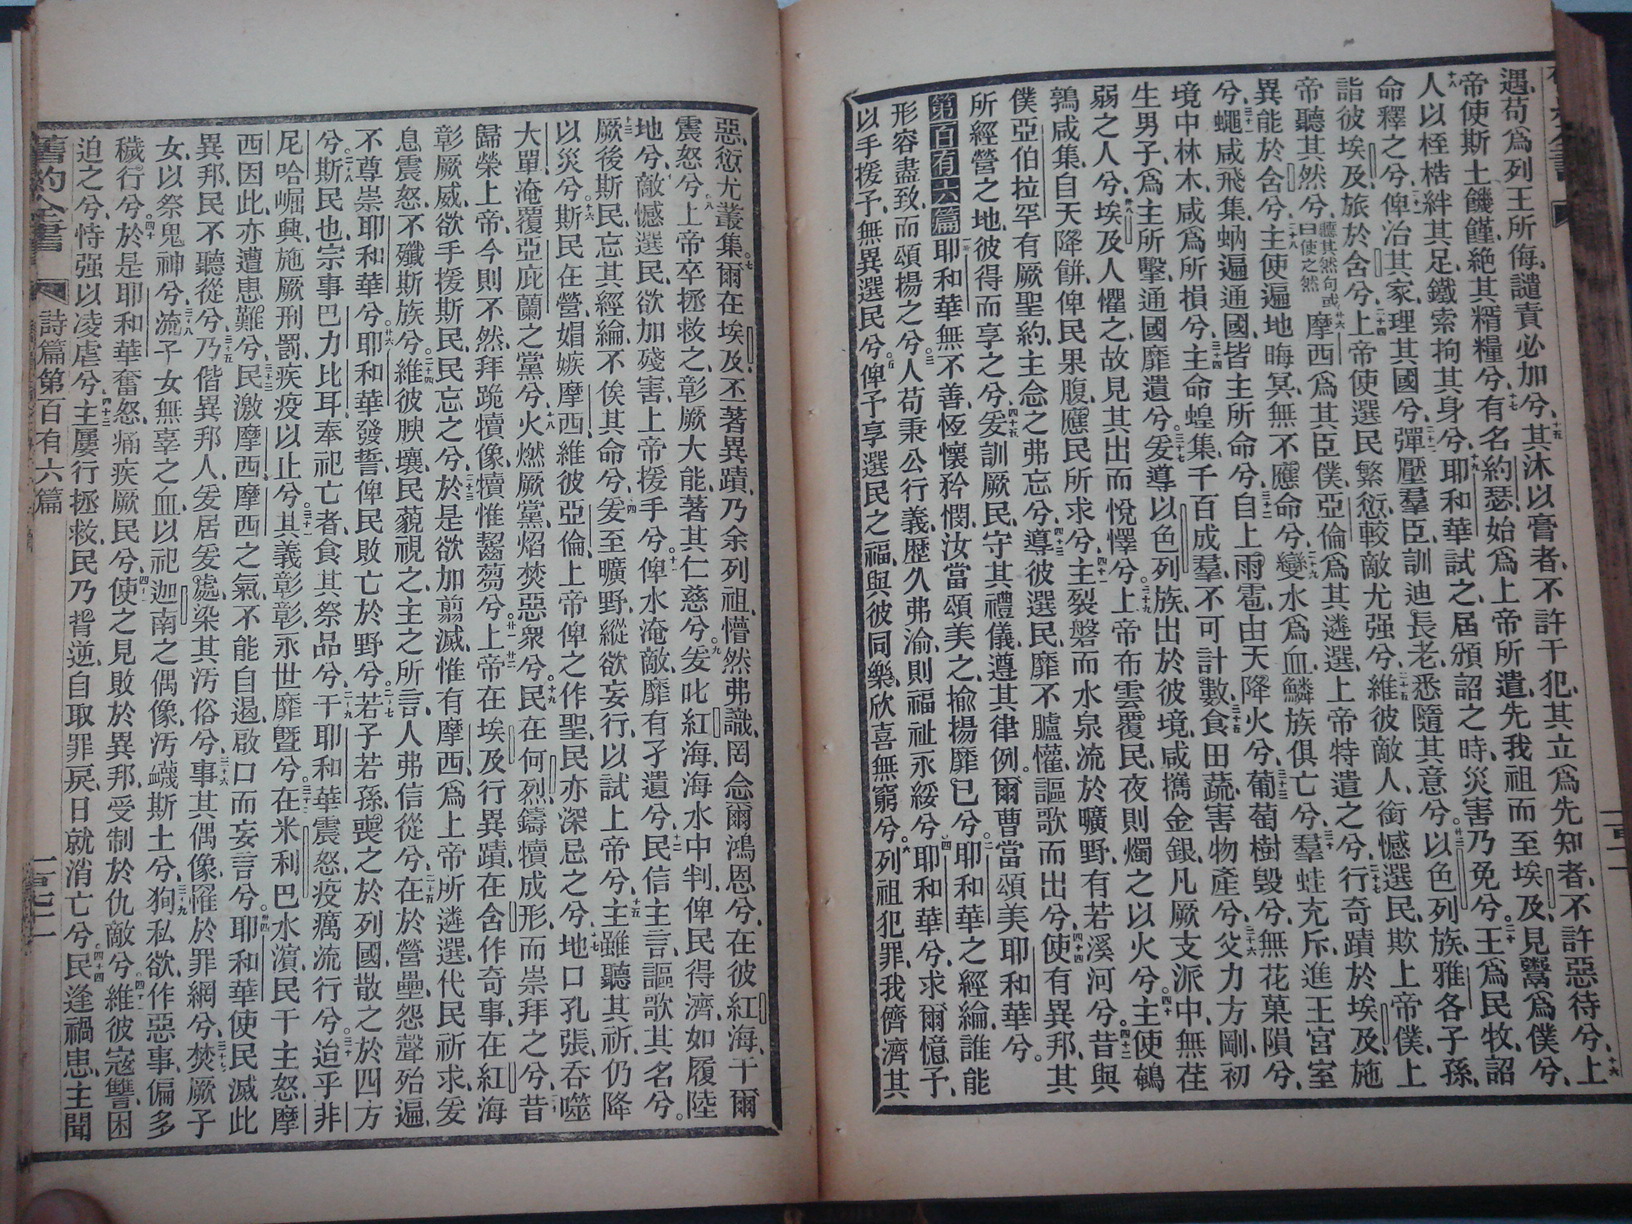 遇、苟爲列王所侮、譴責必加兮、十五其沐以膏者、不許干犯、其立爲先知者、不許惡待兮、十六上
帝使斯土饑饉、絶其糈糧兮、十七有名約瑟、始爲上帝所遣、先我祖而至埃及、見鬻爲僕兮、
十八人以桎梏絆其足、鐵索拘其身兮、十九耶和華試之、屆頒詔之時、災害乃免兮、二十王爲民牧、詔
命釋之兮、二十一俾治其家、理其國兮、二十二彈壓羣臣、訓迪長老、悉隨其意兮、廿三以色列族、雅各子孫、
詣彼埃及、旅於含兮、二十四上帝使選民繁衍、較敵尤强兮、二十五維彼敵人、銜憾選民、欺上帝僕、上
帝聽其然兮、聽其然句或曰使之然廿六摩西爲其臣僕、亞倫爲其遴選、上帝特遣之兮、二十七行奇蹟於埃及、施
異能於含兮、二十八主使遍地晦冥、無不應命兮、二十九變水爲血、鱗族俱亡兮、三十羣蛙充斥、進王宮室
兮、三十一蠅咸飛集、蚋遍通國、皆主所命兮、三十二自上雨雹、由天降火兮、三十三葡萄樹毁兮、無花菓隕兮、
境中林木、咸爲所損兮、三十四主命蝗集、千百成羣、不可計數、三十五食田蔬、害物產兮、三十六父力方剛、初
生男子、爲主所擊、通國靡遺兮、三十七爰導以色列族、出於彼境、咸攜金銀、凡厥支派中、無荏
弱之人兮、卅八埃及人懼之、故見其出而悅懌兮、三十九上帝布雲覆民、夜則燭之以火兮、四十主使鵪
鶉咸集、自天降餅、俾民果腹、應民所求兮、四十一主裂磐而水泉流、於曠野有若溪河兮、四十二昔與
僕亞伯拉罕、有厥聖約、主念之弗忘兮、四十三導彼選民、靡不臚懽、謳歌而出兮、四十四使有異邦、其
所經營之地、彼得而享之兮、四十五爰訓厥民、守其禮儀、遵其律例、爾曹當頌美耶和華兮。
第百有六篇 一耶和華無不善、恆懷矜憫、汝當頌美之、揄揚靡已兮、二耶和華之經綸、誰能
形容盡致、而頌揚之兮、三人苟秉公行義、歷久弗渝、則福祉永綏兮、四耶和華兮、求爾憶予、
以手援予、無異選民兮、五俾予享選民之福、與彼同樂、欣喜無窮兮、六列祖犯罪、我儕濟其
惡、愆尤叢集、七爾在埃及、丕著異蹟、乃余列祖、懵然弗識、罔念爾鴻恩兮、在彼紅海、干爾
震怒兮、八上帝卒拯救之、彰厥大能、著其仁慈兮、九爰叱紅海、海水中判、俾民得濟、如履陸
地兮、十敵憾選民、欲加殘害、上帝援手兮、十一俾水淹敵、靡有孑遺兮、十二民信主言、謳歌其名兮。
十三厥後斯民、忘其經綸、不俟其命兮、十四爰至曠野、縱欲妄行、以試上帝兮、十五主雖聽其祈、仍降
以災兮、十六斯民在營、媢嫉摩西、維彼亞倫、上帝俾之作聖、民亦深忌之兮、十七地口孔張、吞噬
大單、淹覆亞庇蘭之黨兮、十八火燃厥黨、焰焚惡衆兮、十九民在何烈、鑄犢成形、而崇拜之兮、二十昔
歸榮上帝、今則不然、拜跪犢像、犢惟齧芻兮。廿一廿二上帝在埃及行異蹟、在含作奇事、在紅海
彰厥威、欲手援斯民、民忘之兮、二十三於是欲加翦滅、惟有摩西、爲上帝所遴選、代民祈求、爰
息震怒、不殲斯族兮、二十四維彼腴壤、民藐視之、主之所言、人弗信從兮、二十五在於營壘、怨聲殆遍、
不尊崇耶和華兮、廿六耶和華發誓、俾民敗亡於野兮、二十七若子若孫、喪之於列國、散之於四方
兮、二十八斯民也、宗事巴力比耳、奉祀亡者、食其祭品兮、二十九干耶和華震怒、疫癘流行兮、三十迨乎非
尼哈崛興、施厥刑罰、疾疫以止兮、三十一其義彰彰、永世靡曁兮、三十二在米利巴水濱、民干主怒、摩
西因此亦遭患難兮、三十三民激摩西、摩西之氣不能自遏、啟口而妄言兮、卅四耶和華使民滅此
異邦、民不聽從兮、三十五乃偕異邦人、爰居爰處、染其汚俗兮、三十六事其偶像、罹於罪網兮、三十七焚厥子
女、以祭鬼神兮、三十八流子女無辜之血、以祀迦南之偶像、汚衊斯土兮、三十九狥私欲、作惡事、偏多
穢行兮、四十於是耶和華奮怒、痛疾厥民兮、四一使之見敗於異邦、受制於仇敵兮、四二維彼寇讐、困
迫之兮、恃强以凌虐兮、四十三主屢行拯救、民乃背逆、自取罪戾、日就消亡兮、四十四民逢禍患、主聞
舊約全書 詩篇第百有六篇